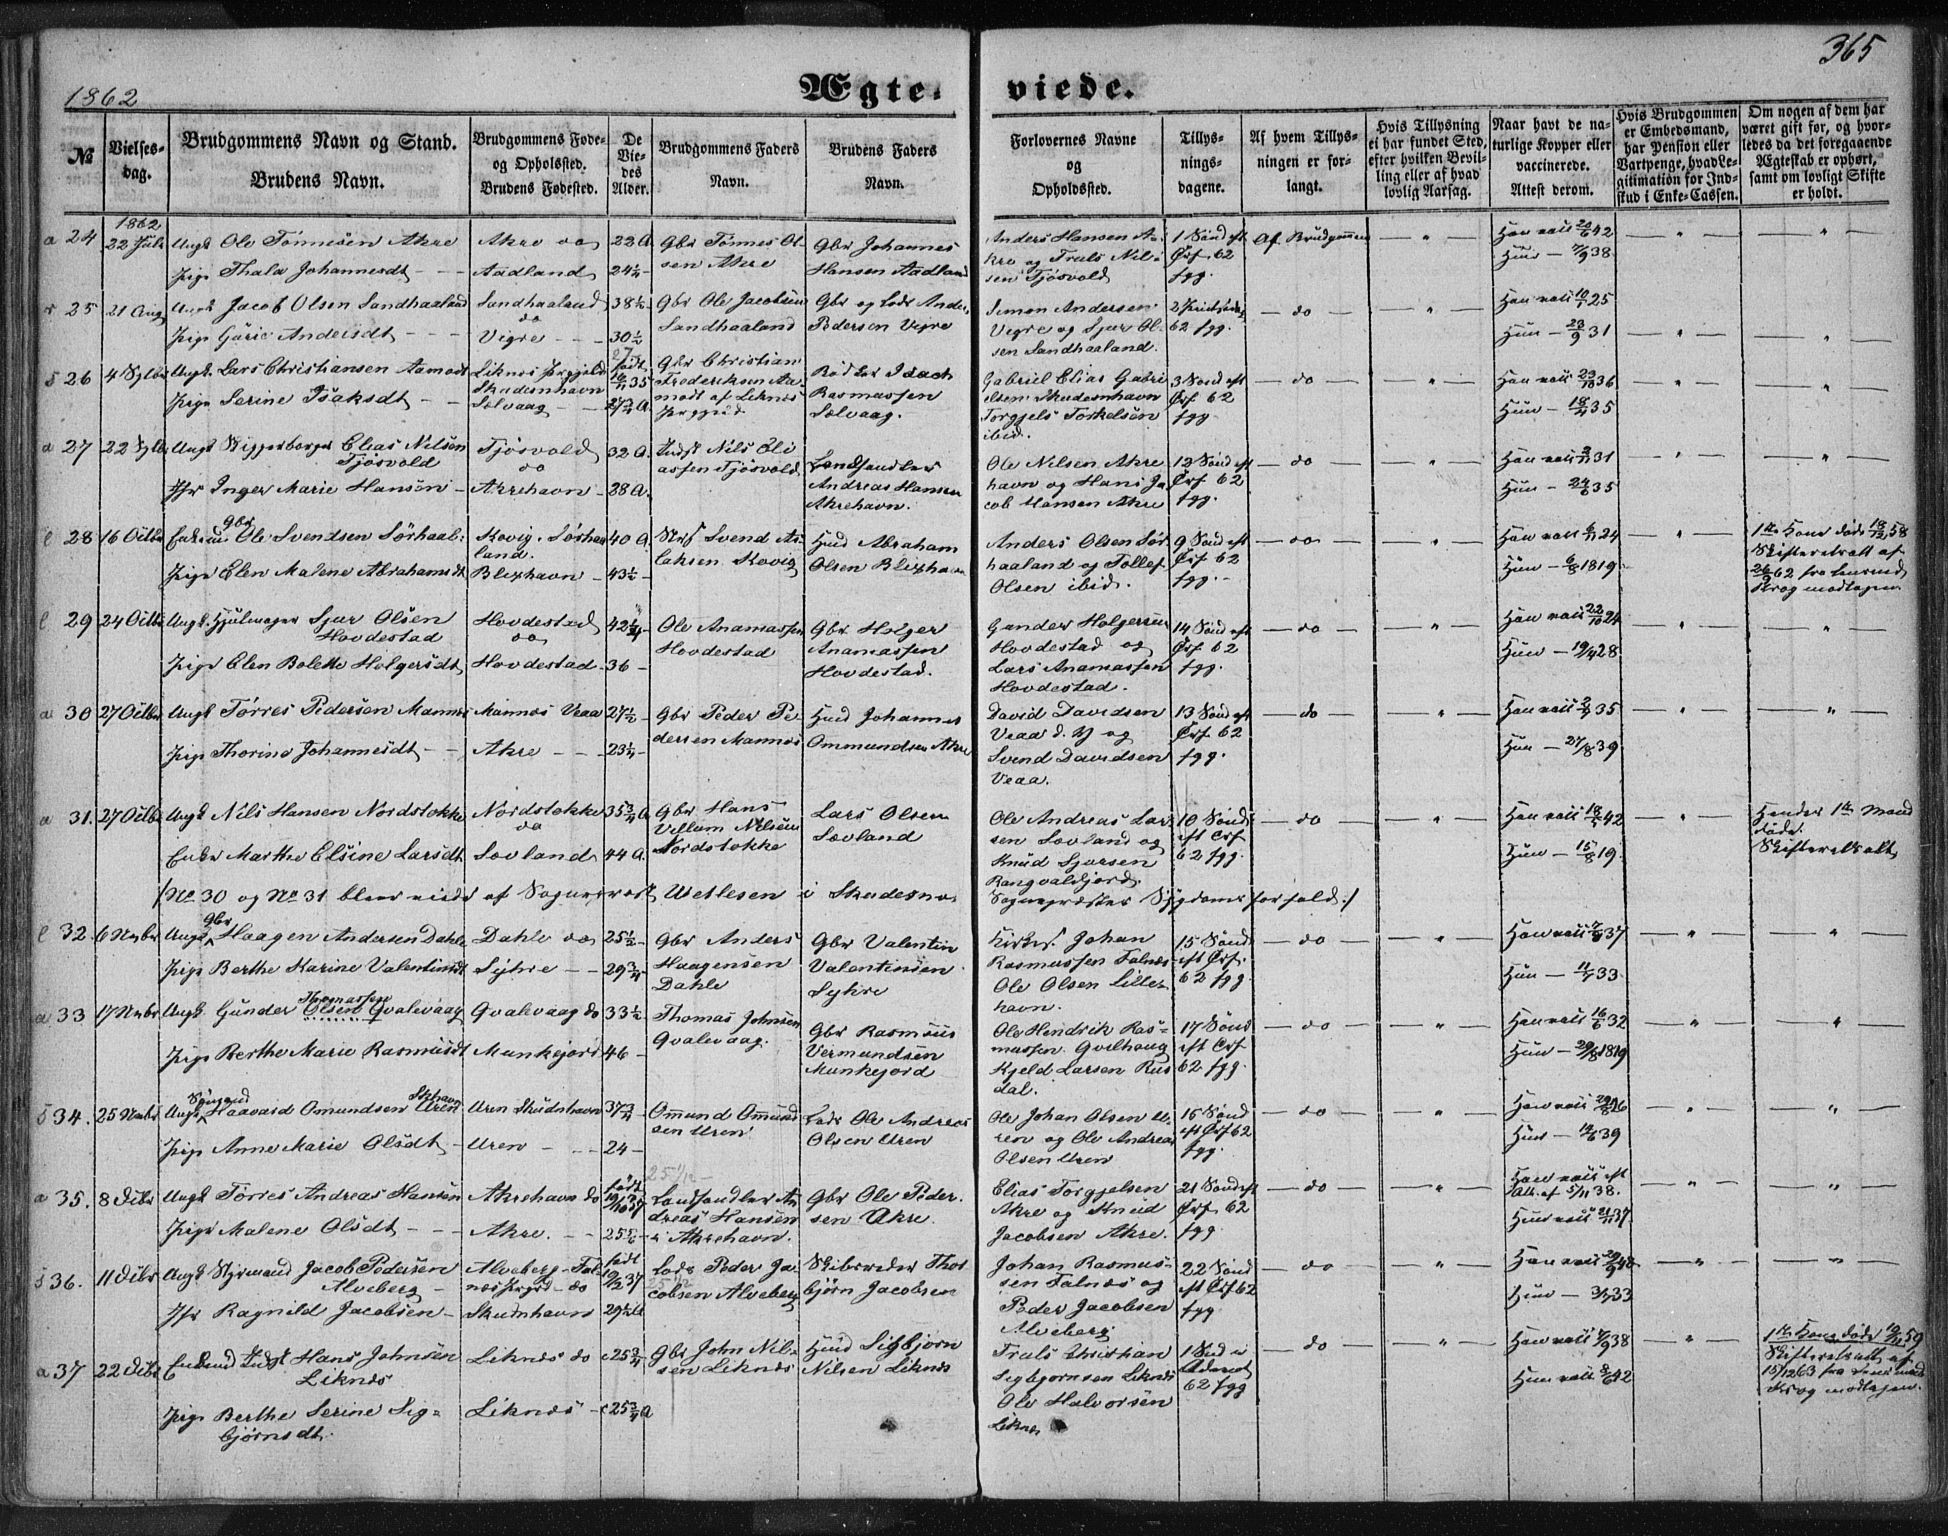 365
1862
Ægte- viede.
№
Vielses-
dag.
Brudgommens Navn og Stand.
Brudens Navn.
Brudgommens Føde-
og Opholssted.
Brudens Fødested.
De
Vie-
des
Alder.
Brudgommens Faders
Navn.
Brudens Faders
Navn.
Forlovernes Navne
og
Opholdssted.
Tillys-
nings-
dagene.
Af hvem Tillys-
ningen er for-
langt.
Hvis Tillysning
ei har fundet Sted,
efter hvilken Bevil-
ling eller af hvad
lovlig Aarsag.
Naar havt de na-
turlige Kopper eller
vaccinerede.
Attest derom.
Hvis Brudgommen
er Embedsmand,
har Pension eller
Vartpenge, hvad Le-
gitimation for Ind-
skud i Enke-Cassen.
Om nogen af dem har
været gift før, og hvor-
ledes da det foregaaende
Ægteskab er ophørt,
samt om lovligt Skifte
er holdt.
a 24
1862
22 Juli
Ungk Ole Tönnesen Akre
Pige Thala Johannesdt
Akre do
Aadland
22 A.
24¼
Gbr Tönnes Ol-
sen Akre
Gbr Johannes
Hansen Aadland
Anders Hansen A-
kre og Truls Nil-
sen Tjösvold
1 Sönd eft
Örf 62
fgg.
Af Brudgommen
Han vacc 22/6 42
Hun - 7/9 38
25
21 Aug
Ungk Jacob Olsen Sandhaaland
Pige Gurie Andersdt
Sandhaaland
do
Vigre
38½
30½
Gbr Ole Jacobsen
Sandhaaland
Gbr og Lods Anders
Pedersen Vigre
Simon Andersen
Vigre og Sjur Ol-
sen Sandhaaland.
62 fgg.
do
Han vacc 10/1 25
Hun - 23/9 31
S 26
4 Sptbr
Ungk Lars Christiansen Aamodt
Pige Serine Isaksdt
Liknes Prgjeld
Skudesnhavn
Sælvaag
27
födt
16/1 35
27¾ A.
Gbr Christian
Frederiksen Aa-
modt af Liknes
Prgjeld
Rasmussen
Sælvaag.
Gabriel Elias Gabri
elsen Skudesnhavn
Torgjels Torkelsen
ibid.
3 Sönd eft
Örf 62
fgg.
do
Han vacc 23/10 36
Hun - 18/9 35
a 27
22 Sptb
Ungk Skipperborger Elias Nilsen
Tjösvold
Jfr Inger Marie Hansen
Tjösvold
do
Akrehavn
32 A.
28 A.
Indst Nils Eli
assen Tjösvold
Landhandler
Andreas Hansen
Akrehavn.
Ole Nilsen Akre
havn og Hans Ja
cob Hansen Akre
12 Sönd eft
Örf 62
fgg.
do
Han vacc 31
Hun - 24/6 35
l 28
16 Octbr
Enkem. Gbr Ole Svendsen Sörhaal-
Pige Elen Malene Abrahamsdt
Kovig. Sörhaa
land.
Blixhavn
40 A.
43½
Svend As
laksen Kovig
Husd Abraham
Olsen Blixhavn
Anders Olsen Sör
haaland og Tollef
Olsen ibid.
9 Sönd eft
Örf 62
fgg.
do
Han vacc 24
Hun - 6/8 1819.
1ste Kone döde 18/12 58
Skifteretsatt af
26/9 62 fra Lensmd
Krog modtagen.
l 29
24 Octbr
Ungk Hjulmager Sjur Olsen
Hovdestad
Pige Elen Bolette Holgersdt
Hovdestad
do
Hovdestad
42¼
36
Ole Anamassen
Hovdestad
Gbr Holger
Anamassen
Hovdestad.
Gunder Holgersen
Hovdestad og
Lars Anamassen
Hovdestad.
14 Sönd eft
Örf 62
fgg.
do
Han vacc 22/10 24
Hun - 19/4 28
a 30
27 Octbr
Ungk Törres Pedersen Mannes
Pige Thorine Johannesdt
Mannes Veaa
Akre
27½
23¼
Gbr Peder Pe
dersen Mannes
Husd Johannes
Ommundsen Akre
David Davidsen
Veaa d. Y og
Svend Davidsen
Veaa.
13 Sönd eft
Örf 62
fgg.
do
Han vacc 35
Hun - 27/8 39
a 31.
27 Octbr
Ungk Nils Hansen Nordstokke
Enke Marthe Elsine Larsdt
Nordstokke
do
Sævland
35¾ A.
44 A.
Gbr Hans
Villum Nilsen
Nordstokke
Lars Olsen
Sævland
Ole Andreas Lar
sen Sævland og
Knud Sjursen
Rangvaldfjord.
10 Sönd
eft Örf
62 fgg.
do
Han vacc 18/7 42
Hun - 15/8 19.
Hendes 1ste Mand
döde.
Skifteretsatt
/: No 30 og No 31 blev viede af Sognepræst Wetlesen i Skudesnæs
Sognepræstens Sygdomsforfald :/
l 32.
6 Nvbr
Ungk Gbr Haagen Andersen Dahle
Pige Berthe Karine Valentinsdt
Dahle do
Syhre
25½
29¾
Gbr Anders
Haagensen
Dahle
Gbr Valentin
Valentinsen
Syhre
Kirkes. Johan
Rasmussen Falnæs
Ole Olsen Lille-
havn.
15 Sönd
eft Örf.
62 fgg.
do
Han vacc 37
Hun - 11/7 33
a 33
17 Nvbr
Ungk Gunder Thomassen Olsen Qvalevaag
Pige Berthe Marie Rasmusdt
Qvalevaag do
Munkejord
33½
46
Thomas Johnsen
Qvalevaag.
Gbr Rasmus
Vermundsen
Munkejord
Ole Hendrik Ras-
massen Qvilhaug
Kjeld Larsen Rus
dal.
17 Sönd
eft Örf
62 fgg.
do
Han vacc 16/6 32
Hun - 29/8 1819
S 34.
25 Nvbr
Ungk Sömand Haavard Omundsen Uren Skhavn
Pige Anne Marie Olsdt
Uren Skudshavn
Uren
37¾
24
Omund Omund
sen Uren
Lods Ole Andreas
Olsen Uren
Ole Johan Olsen U-
ren og Ole Andreas
Olsen Uren
15 Sönd
eft Örf 62
fgg.
do
Han vacc 26
Hun - 19/6 39
a 35.
8 Dcbr
Ungk Törres Andreas Hansen
Pige Malene Olsdt
Akrehavn do
Akre.
25 1/2
födt
19/10 37
25½
Landhandler An
dreas Hansen
i Akrehavn.
Gbr Ole Peder-
sen Akre.
Elias Torgjelsen
Akre og Knud
Jacobsen Akre.
21 Sönd eft
Örf 62
fgg
do
Han vacc eft
Att. af 5/11 38.
Hun vacc 21/11 37
S 36.
11 Dcbr
Ungk Styrmand Jacob Pedersen
Alveberg
Jfr Ragnild Jacobsen
Alveberg Fal-
næs Prgjd do
Skudnhavn
födt
37
29½
Lods Peder Ja
cobsen Alveberg
25 1/2
Skibsreder Thor
björn Jacobsen
Johan Rasmus-
sen Falnæs og
Peder Jacobsen
Alveberg
22 Sönd
eft Örf 62
fgg
do
Han vacc 29/9 48
Hun - 3/7 33
a 37
22 Dcbr
Enkemd Indst Hans Johnsen
Liknes
Pige Berthe Serine Sig-
björnsdt.
Liknes do
Liknes
25¾
25¾ A
Gbr John Nil-
sen Liknes
Husd Sigbjörn
Nilsen Liknes
Truls Christian
Sigbjörnsen Liknes
Ole Halvorsen
Liknes
1 Sönd i
Advent
62 fgg
do
Han vacc 38
Hun vacc 42
1ste Kone döde 59
Skifteretsatt af
15/12 63 fra Lensmand
Krog modtagen.